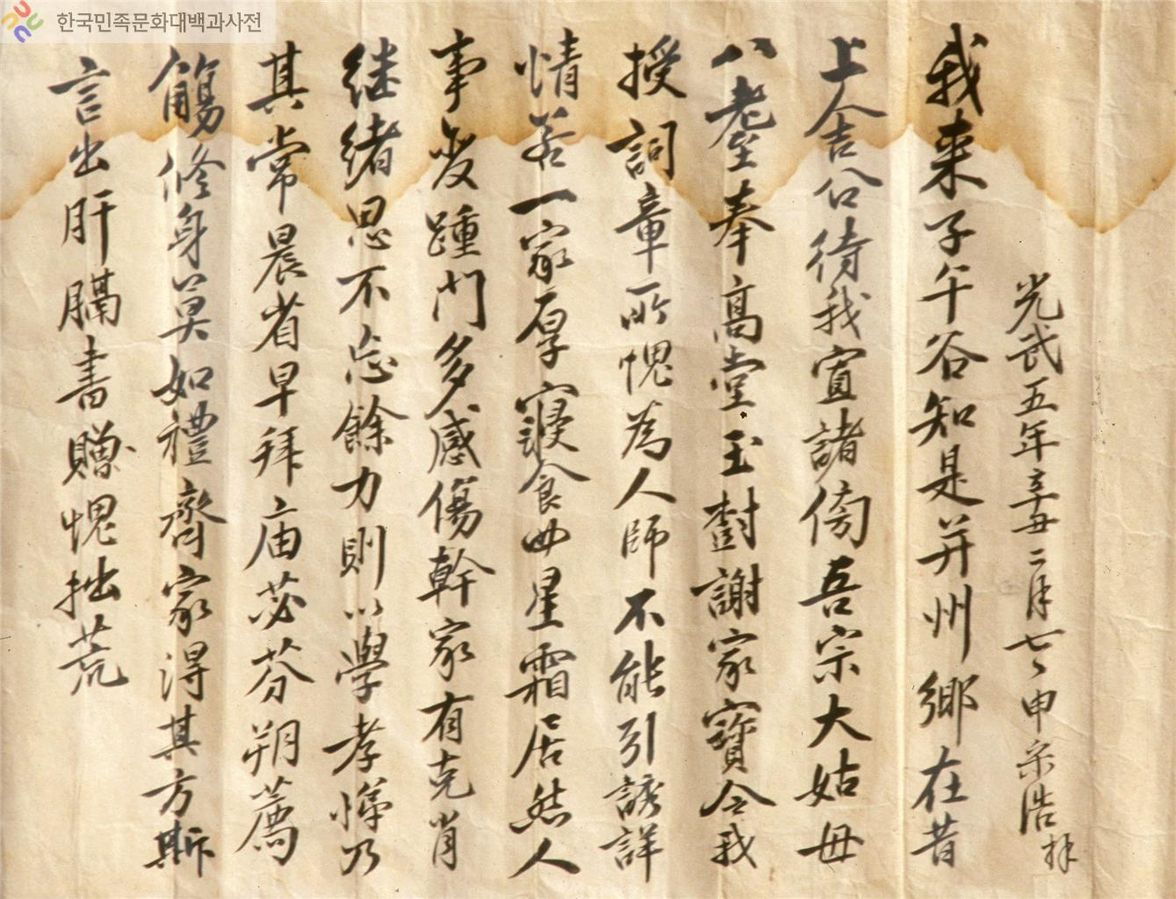 한국민족문화대백과사전
光武五年辛丑二月七日申宗浩拜
我来子午谷知是并州鄉在昔
上舍公待我宜諸衛吾宗大姑母
八耋奉高堂玉樹謝家寶令我
授詞章所愧為人師不能引誘詳
情若一家厚寢食四星霜居然人
事変踵門多感傷幹家有克肖
继緒思不忘餘力則以學孝悌乃
其常晨省早拜庙苾芬朔薦
觴修身莫如禮齊家得其方斯
言出肝膈書贈愧拙荒